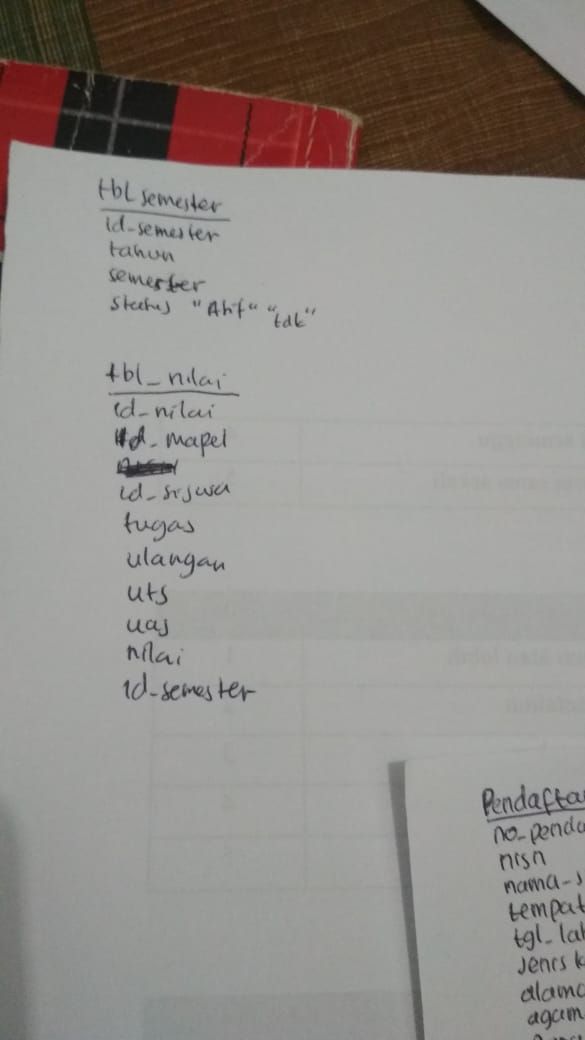 tbl semester
id-semester
tahun
semester
status "Aktif" "tdk"
tbl_nilai
id-nilai
id_mapel
id_siswa
tugas
ulangan
uts
uas
nilai
id-semester
Pendaftar
no_penda
nisn
nama-s
tempat
tgl_lah
jenis k
alama
agam